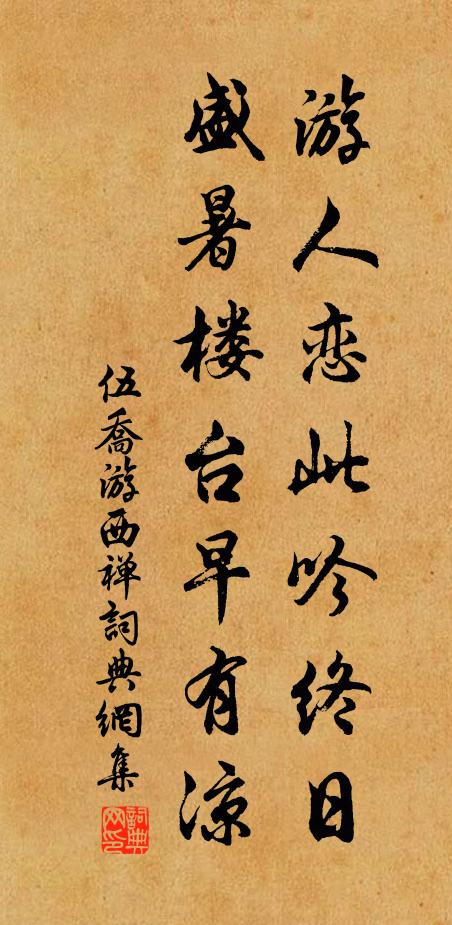 游人恋此吟终日
盛暑楼台早有凉
伍喬游西禅詞典網集
詞典网印